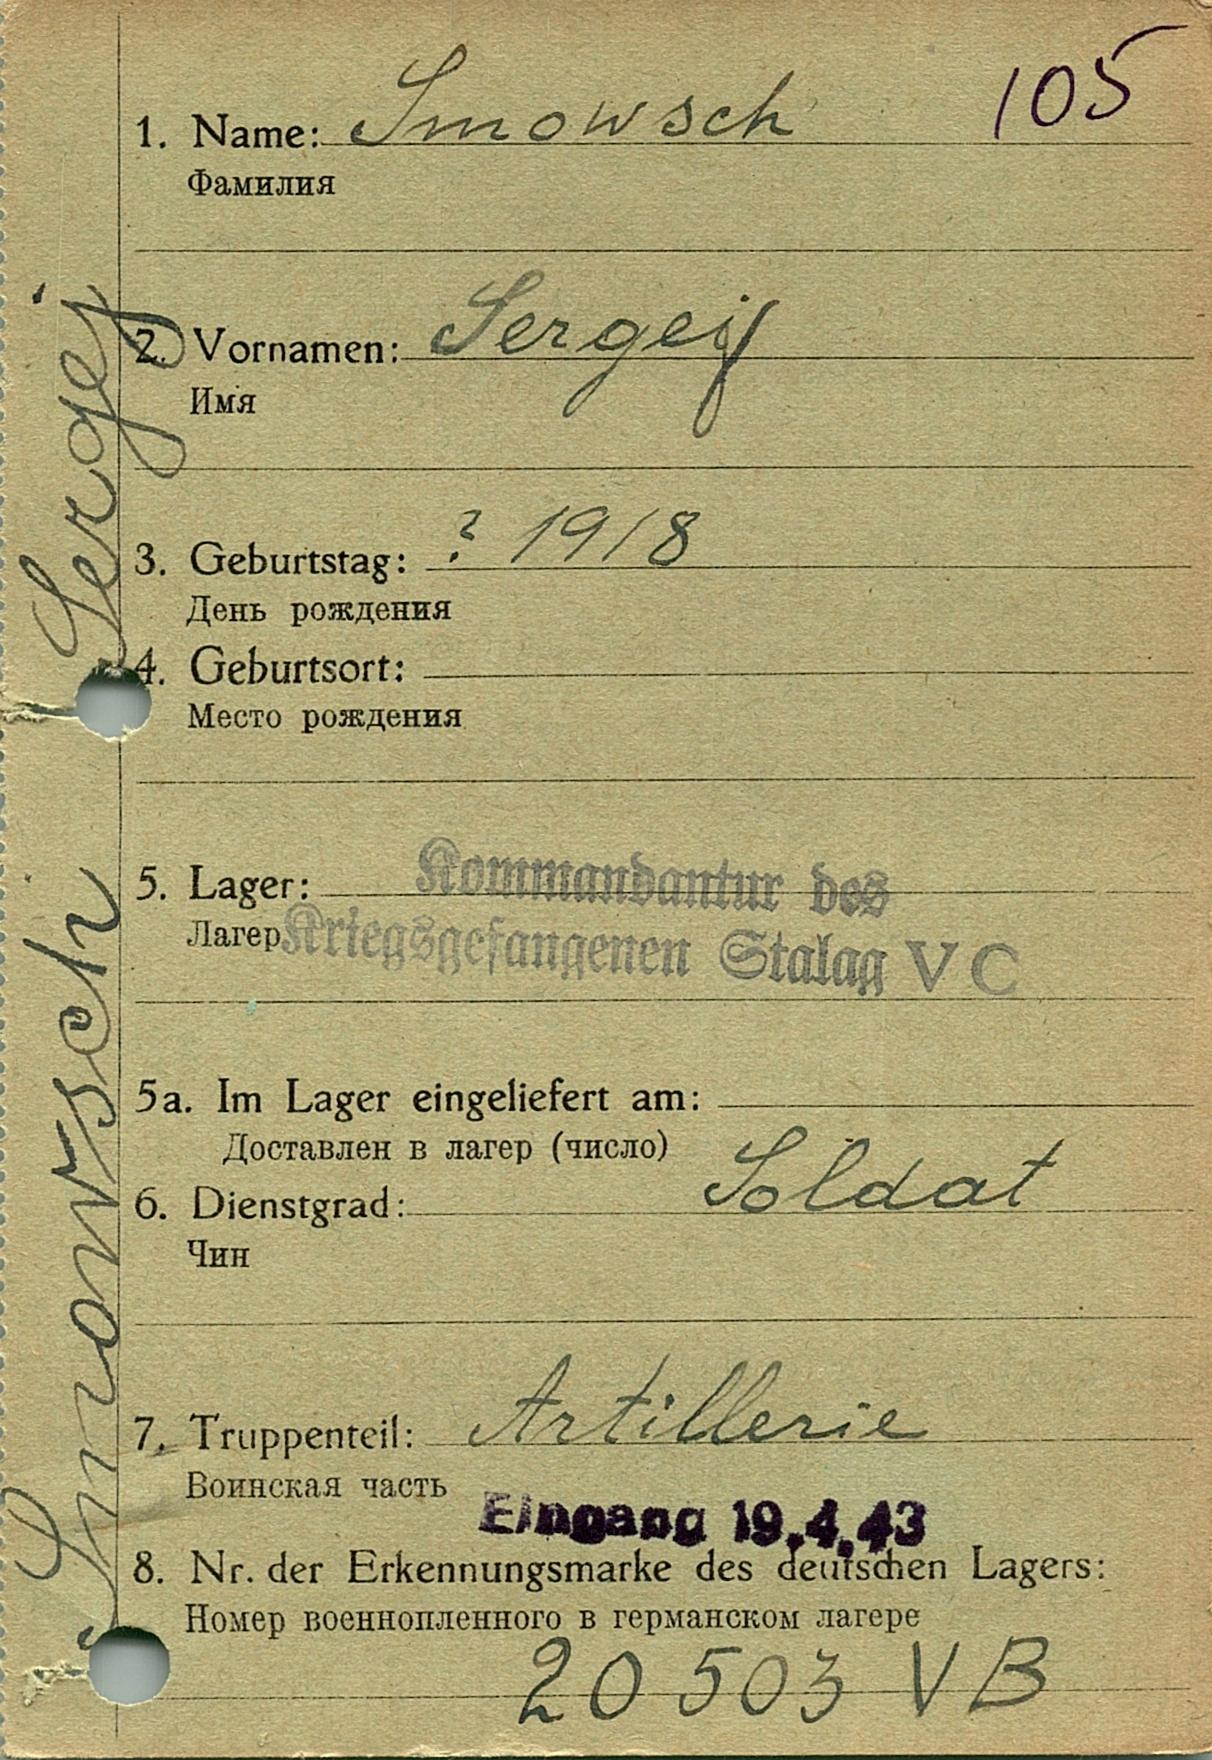 105
1. Name: Smowsch
Фамилия
2. Vornamen: Sergeij
Имя
3. Geburtstag: ? 1918
День рождения
4. Geburtsort:
Место рождения
5. Lager: Kommandantur des
Лагер Kriegsgefangenen Stalag V C
5a. Im Lager eingeliefert am:
Доставлен в лагер (число)
6. Dienstgrad: Soldat
Чин
7. Truppenteil: Artillerie
Воинская часть
Eingang 19.4.43
8. Nr. der Erkennungsmarke des deutschen Lagers:
Номер военнопленного в германском лагере
20503 VB
Smowsch Sergej